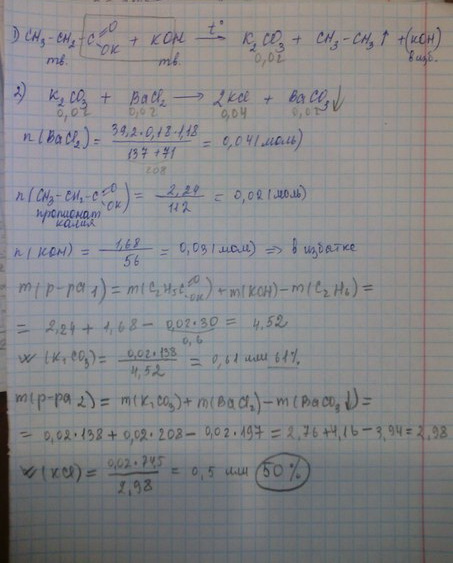 1) CH3-CH2-C=O OK + KOH t°→ K2CO3 + CH3-CH3↑ + (KOH)
тв. тв. 0,02 в изб.
2) K2CO3 + BaCl2 → 2KCl + BaCO3↓
0,02 0,02 0,04 0,02
n(BaCl2) = 39,2·0,18·1,18 / 137+71 = 0,04 (моль)
208
n(CH3-CH2-C=O OK) = 2,24 / 112 = 0,02 (моль)
пропионат калия
n(KOH) = 1,68 / 56 = 0,03 (моль) ⇒ в избытке
m(р-ра1) = m(C2H5C=O OK) + m(KOH) - m(C2H6) =
= 2,24 + 1,68 - 0,02·30 = 4,52
0,6
w(K2CO3) = 0,02·138 / 4,52 = 0,61 или 61%
m(р-ра2) = m(K2CO3) + m(BaCl2) - m(BaCO3↓) =
= 0,02·138 + 0,02·208 - 0,02·197 = 2,76 + 4,16 - 3,94 = 2,98
w(KCl) = 0,02·74,5 / 2,98 = 0,5 или 50%